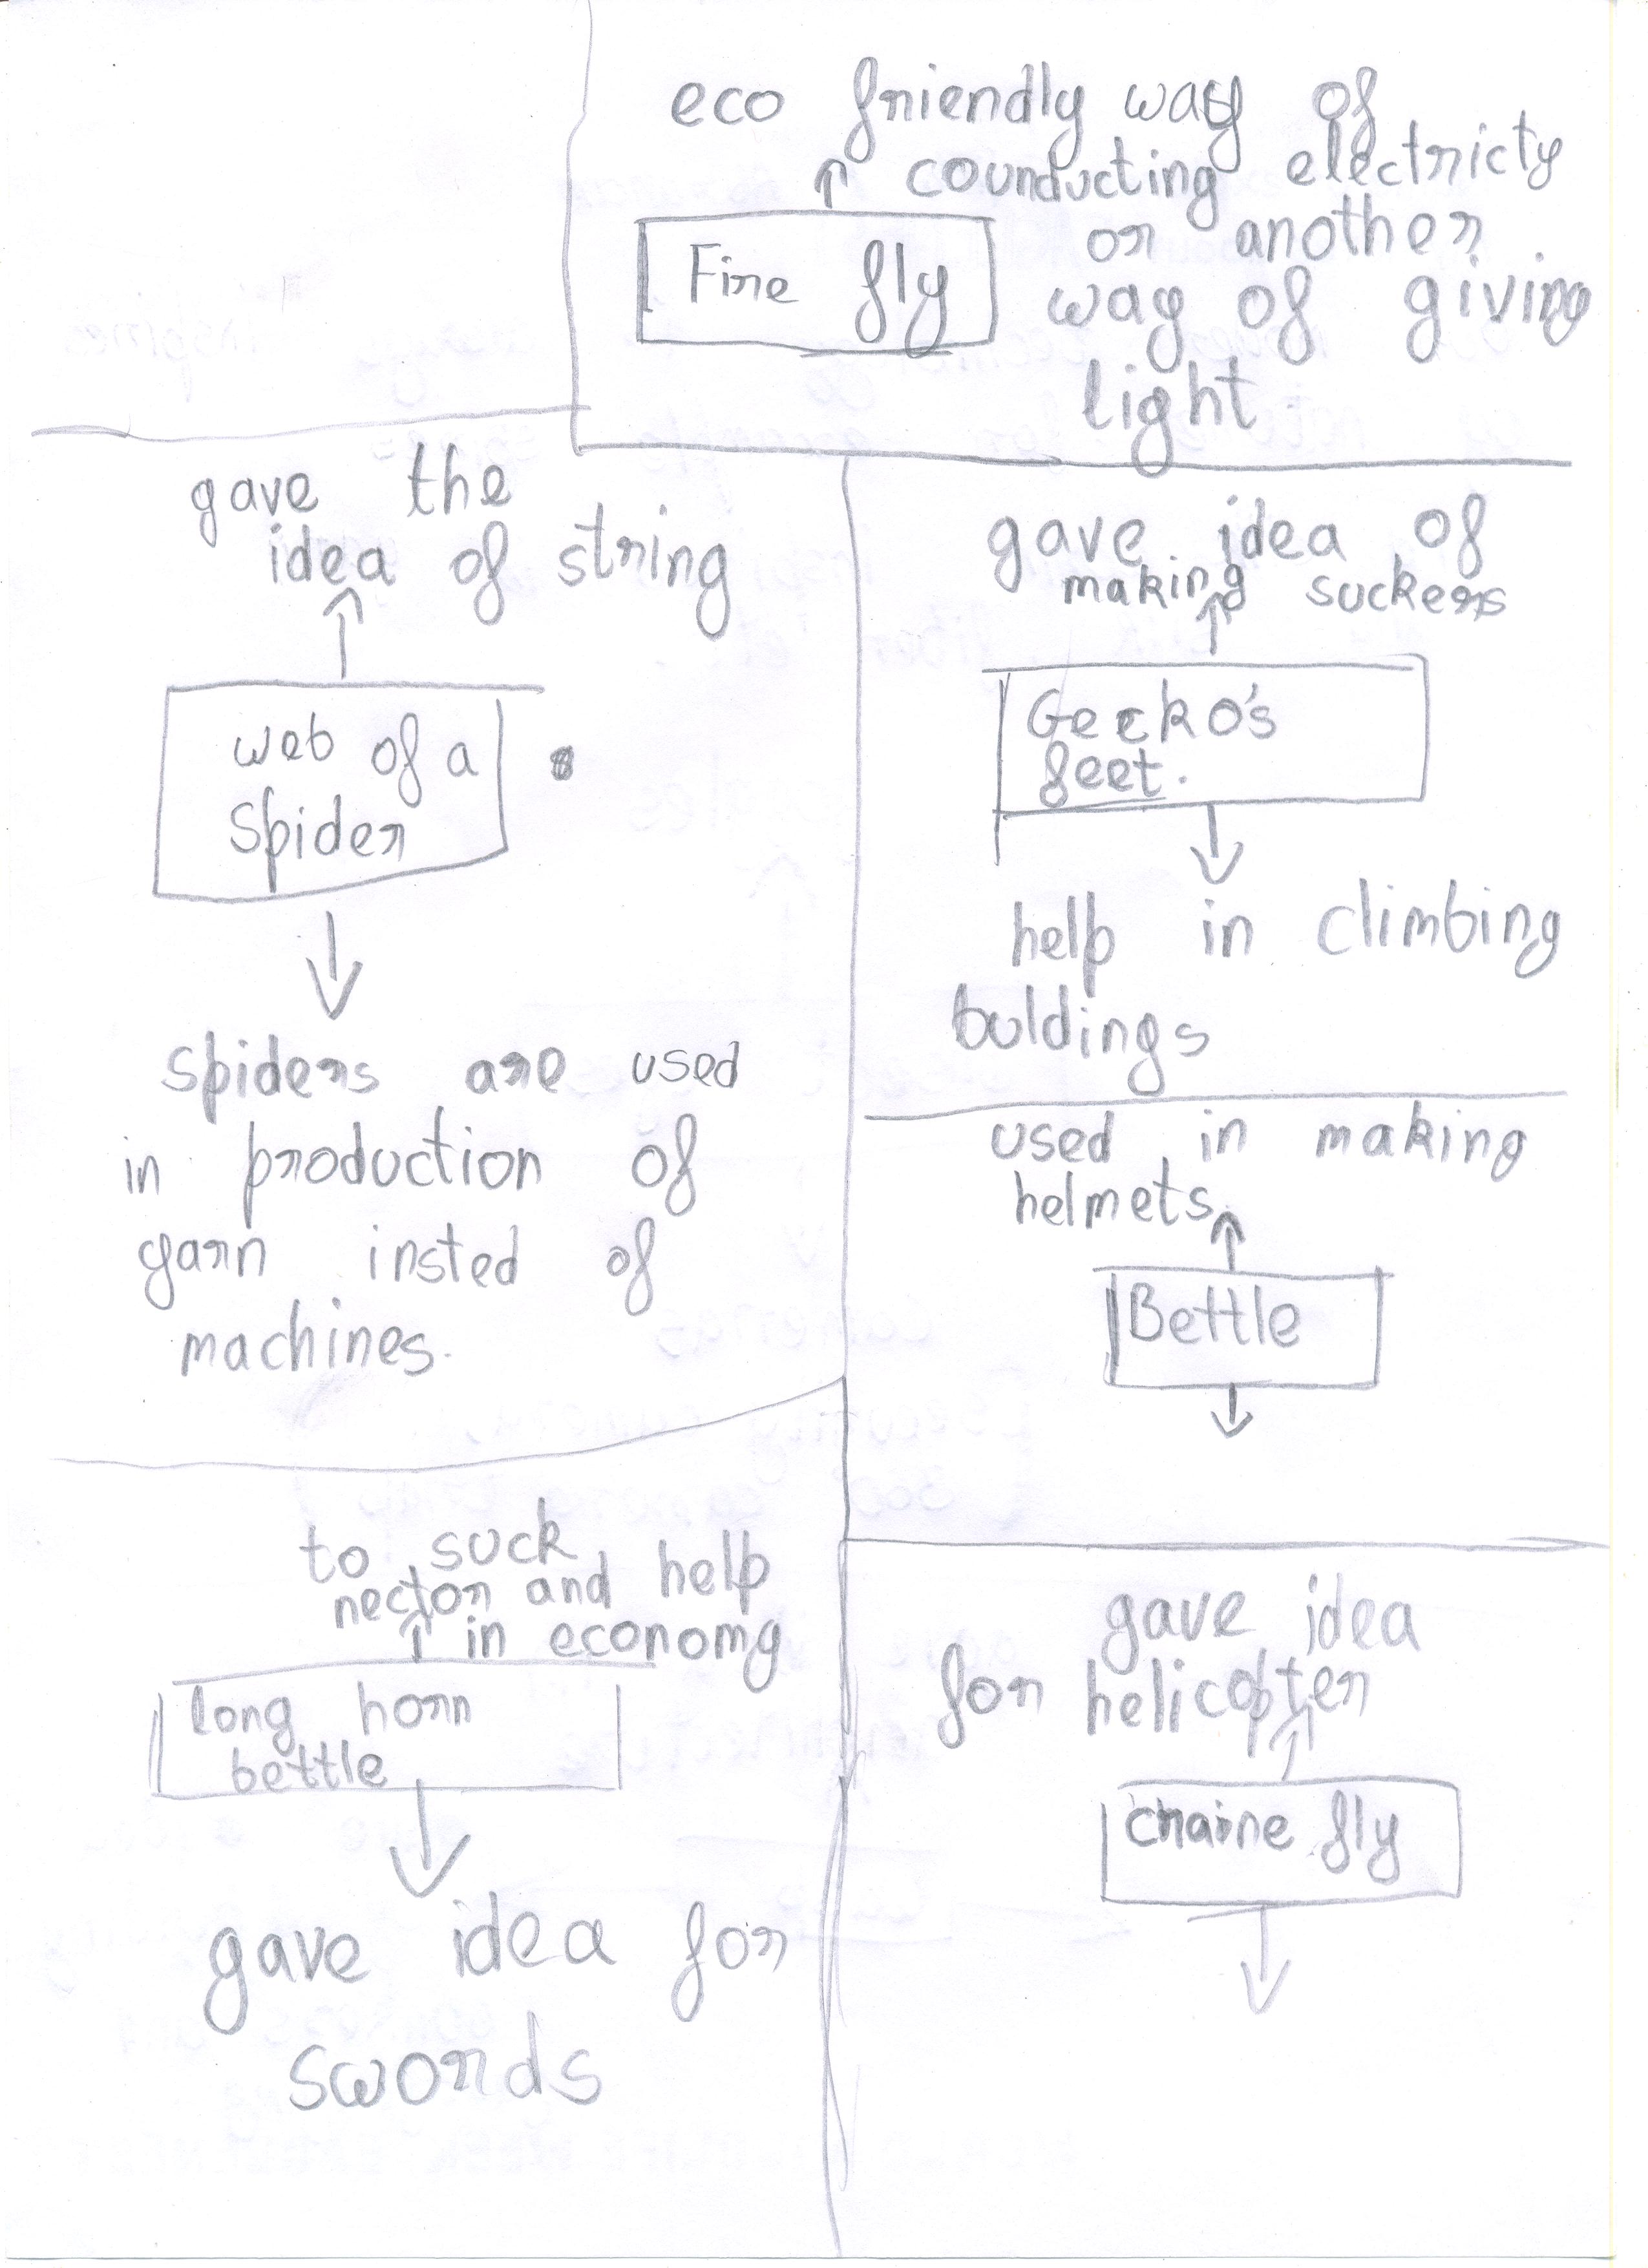 eco friendly way of
counducting electricty
or another
way of giving
light
Fire fly
gave the
idea of string
web of a
Spider
spiders are used
in production of
yarn insted of
machines.
gave idea of
making suckers
Gecko's
feet.
help in climbing
buldings
used in making
helmets
Bettle
to suck
nector and help
in economy
long horn
bettle
gave idea for
swords
gave idea
for helicopter
craine fly